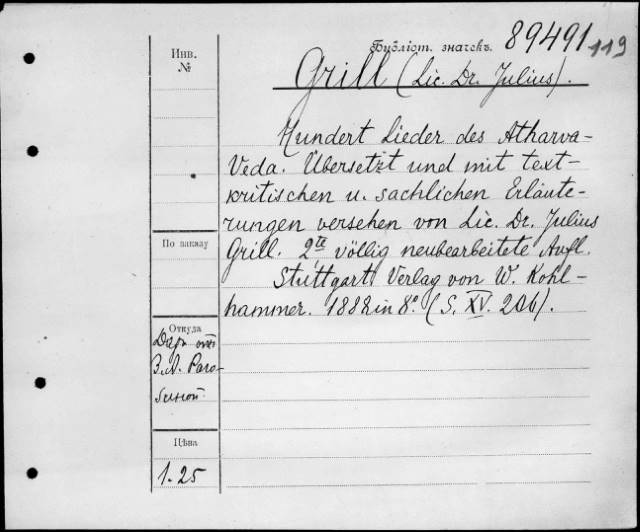 Инв.
№
Библіот. значекъ. 89491 119
Grill (Lic. Dr. Julius).
Hundert Lieder des Atharva-
Veda. Übersetzt und mit text-
kritischen u. sachlichen Erläute-
rungen versehen von Lic. Dr. Julius
По заказу
Grill. 2te völlig neubearbeitete Aufl.
Stuttgart. Verlag von W. Kohl-
hammer. 1888 in 8°. (S. XV. 206).
Откуда
Даръ отъ
З. А. Раго-
зиной
Цѣна
1.25